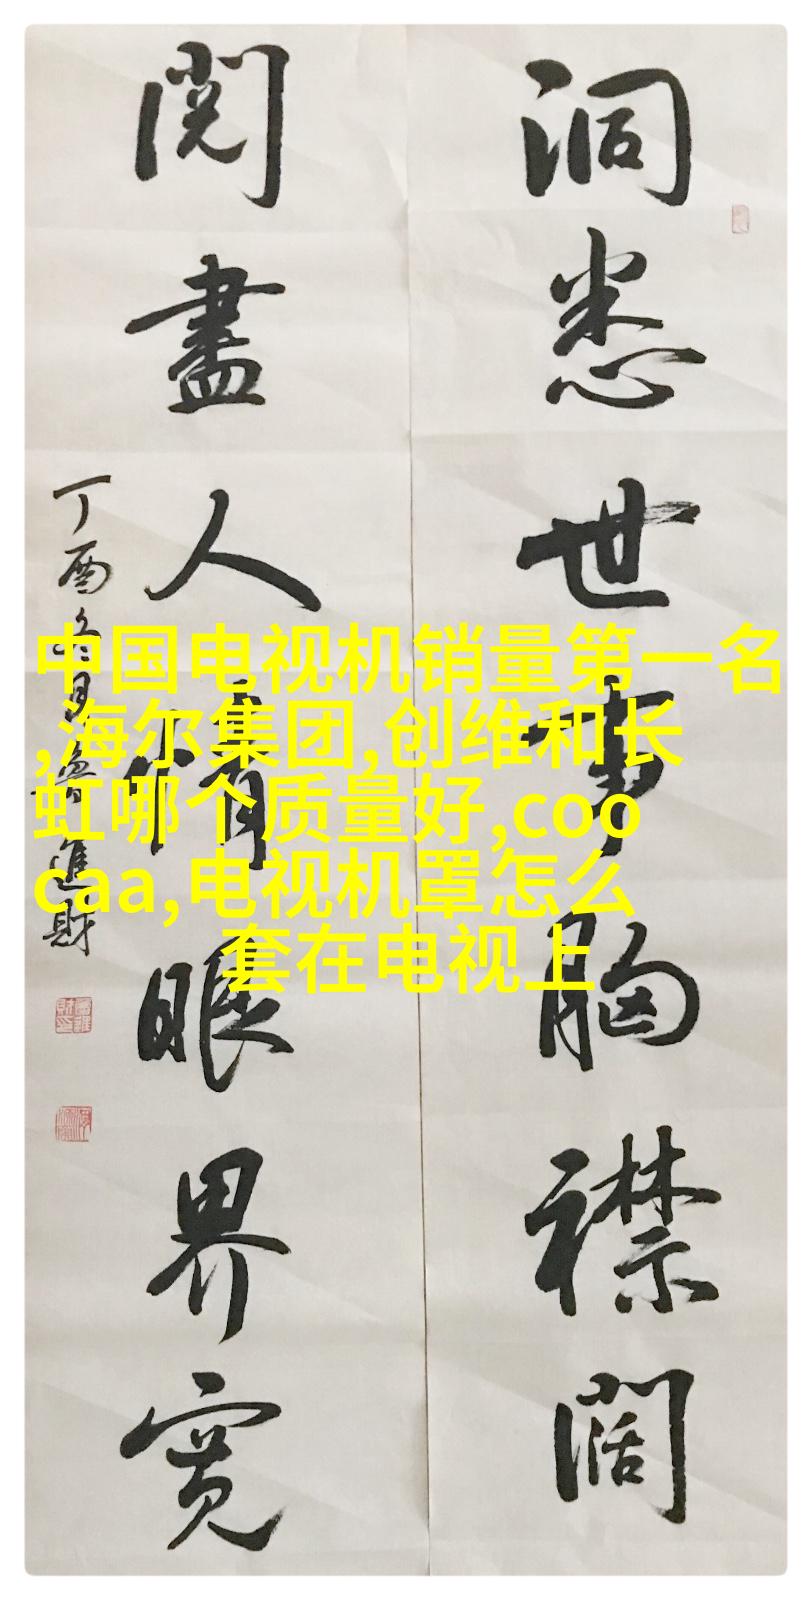 洞悉世事胸襟阔
閲盡人情眼界寬
丁酉冬月魯進財
中国电视机销量第一名
,海尔集团,创维和长
虹哪个质量好,coo
caa,电视机罩怎么
套在电视上